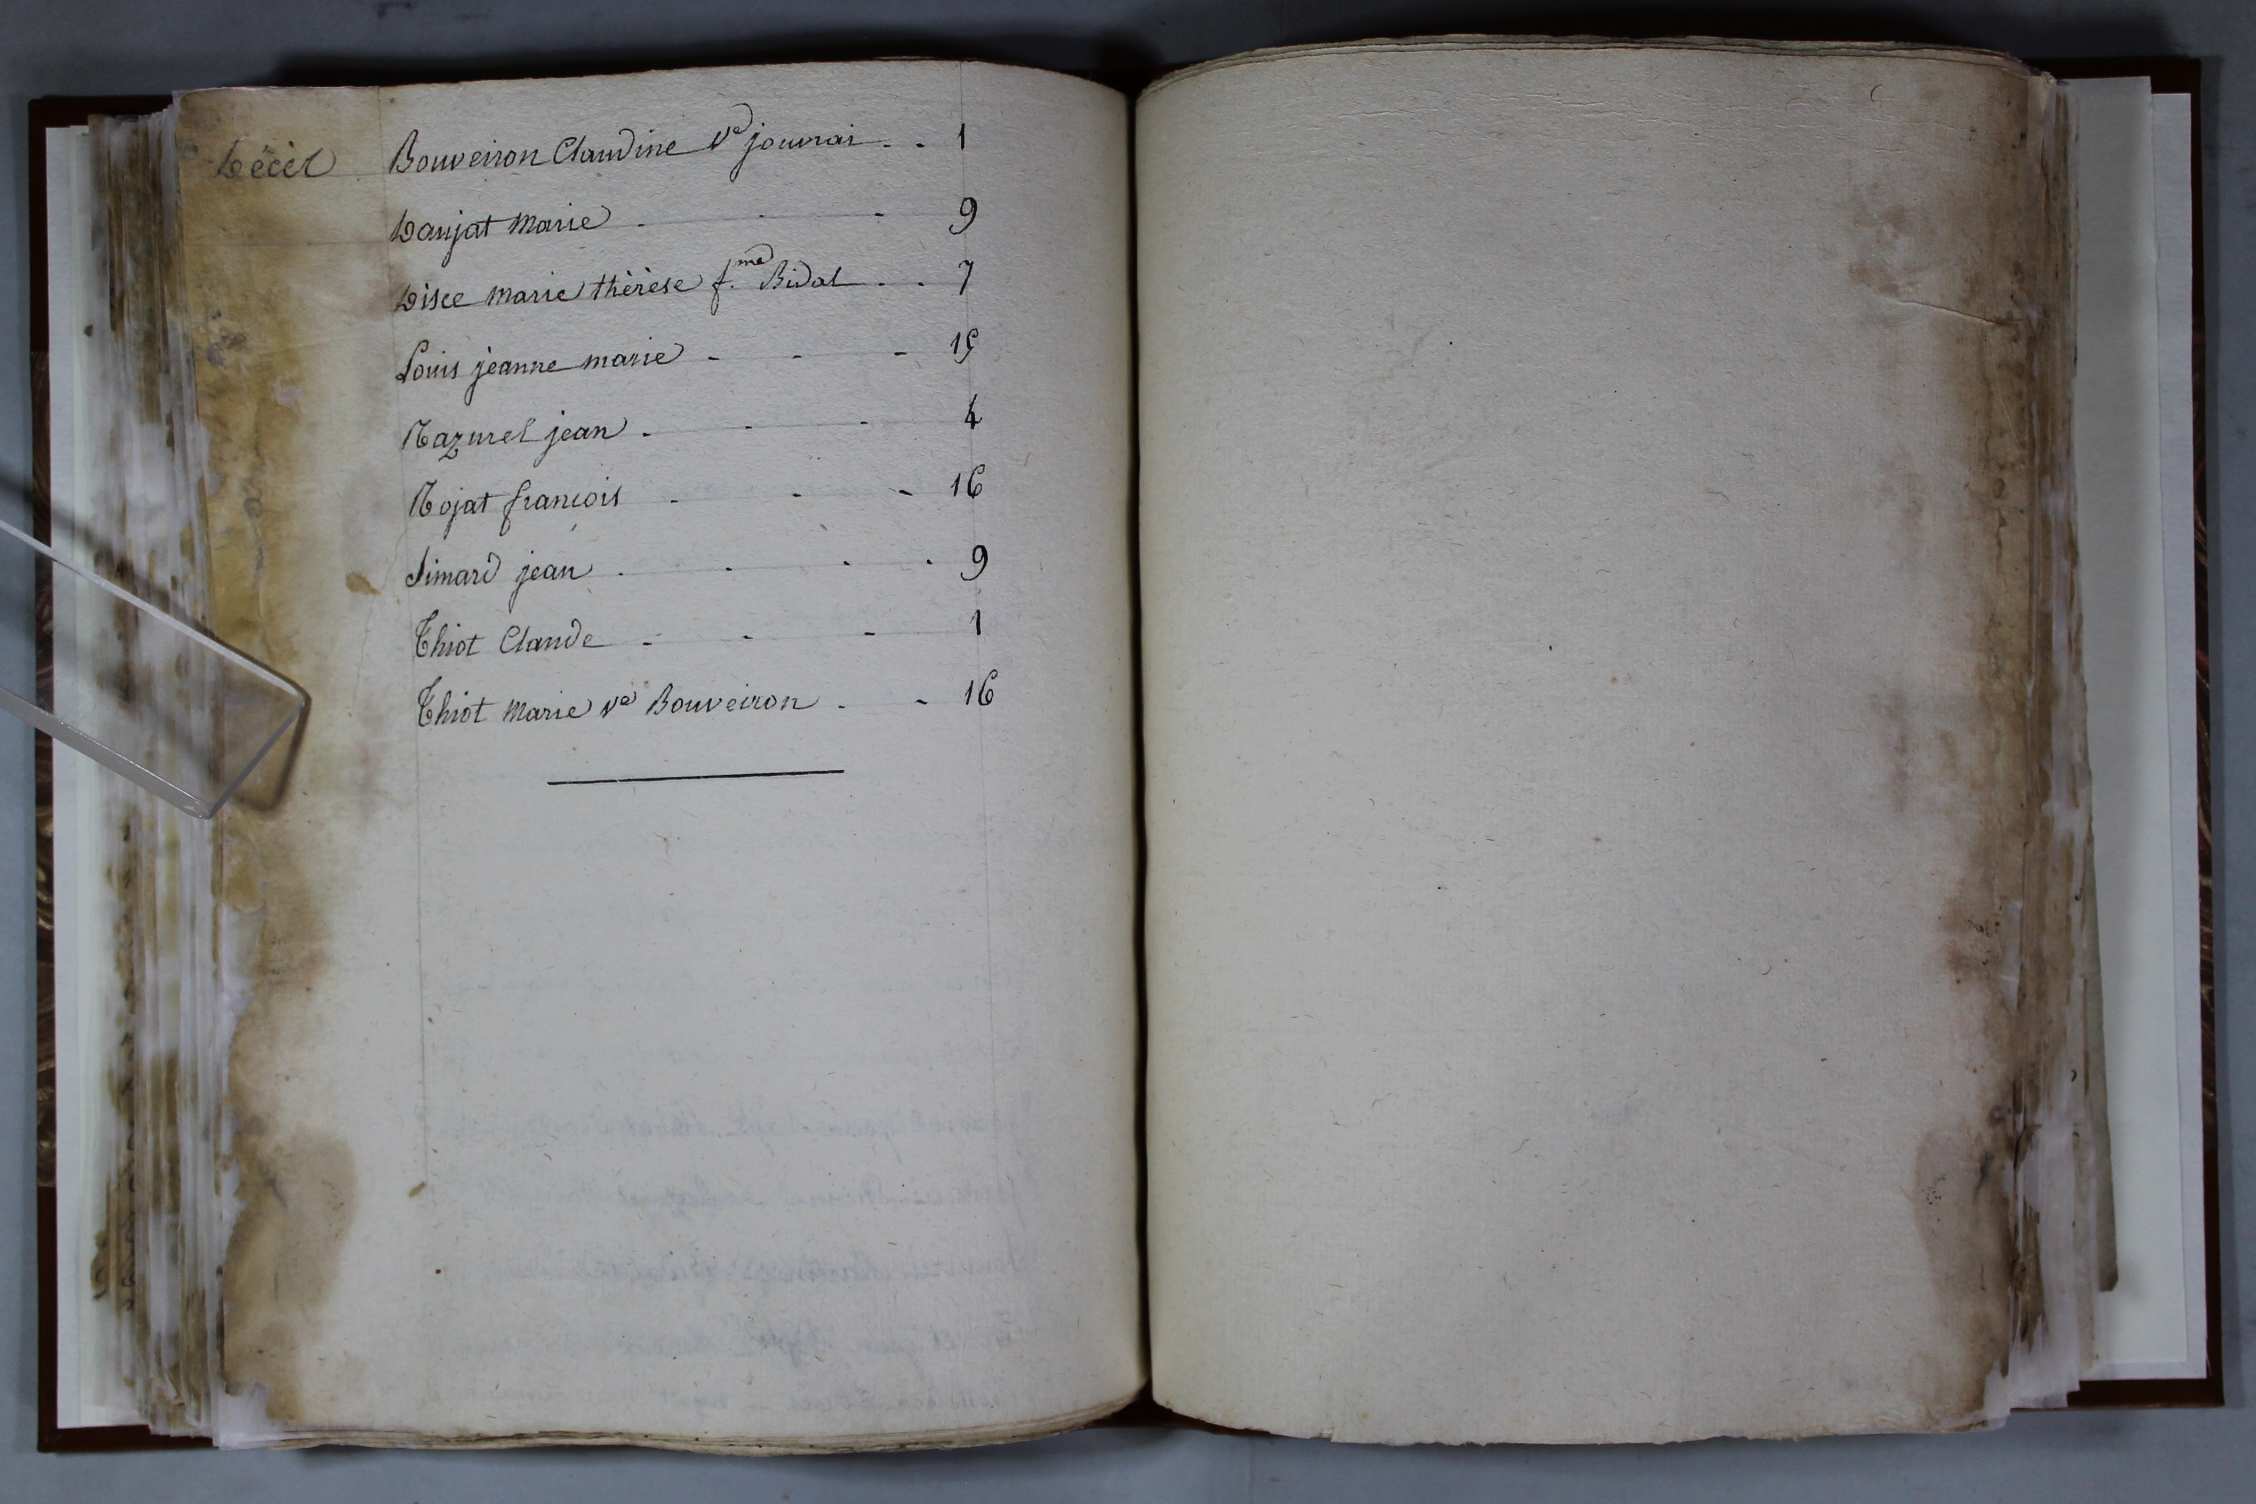 Décès
Bouveiron Claudine Ve jouvrai - - 1
Daujat Marie - - - 9
Disce Marie thèrèse f.me Bidal - - 7
Louis jeanne marie - - - 15
Razurel jean - - - 4
Rojat francois - - - 16
Simard jean - - - - 9
Thiot Claude - - - 1
Thiot Marie Ve Bouveiron - - 16